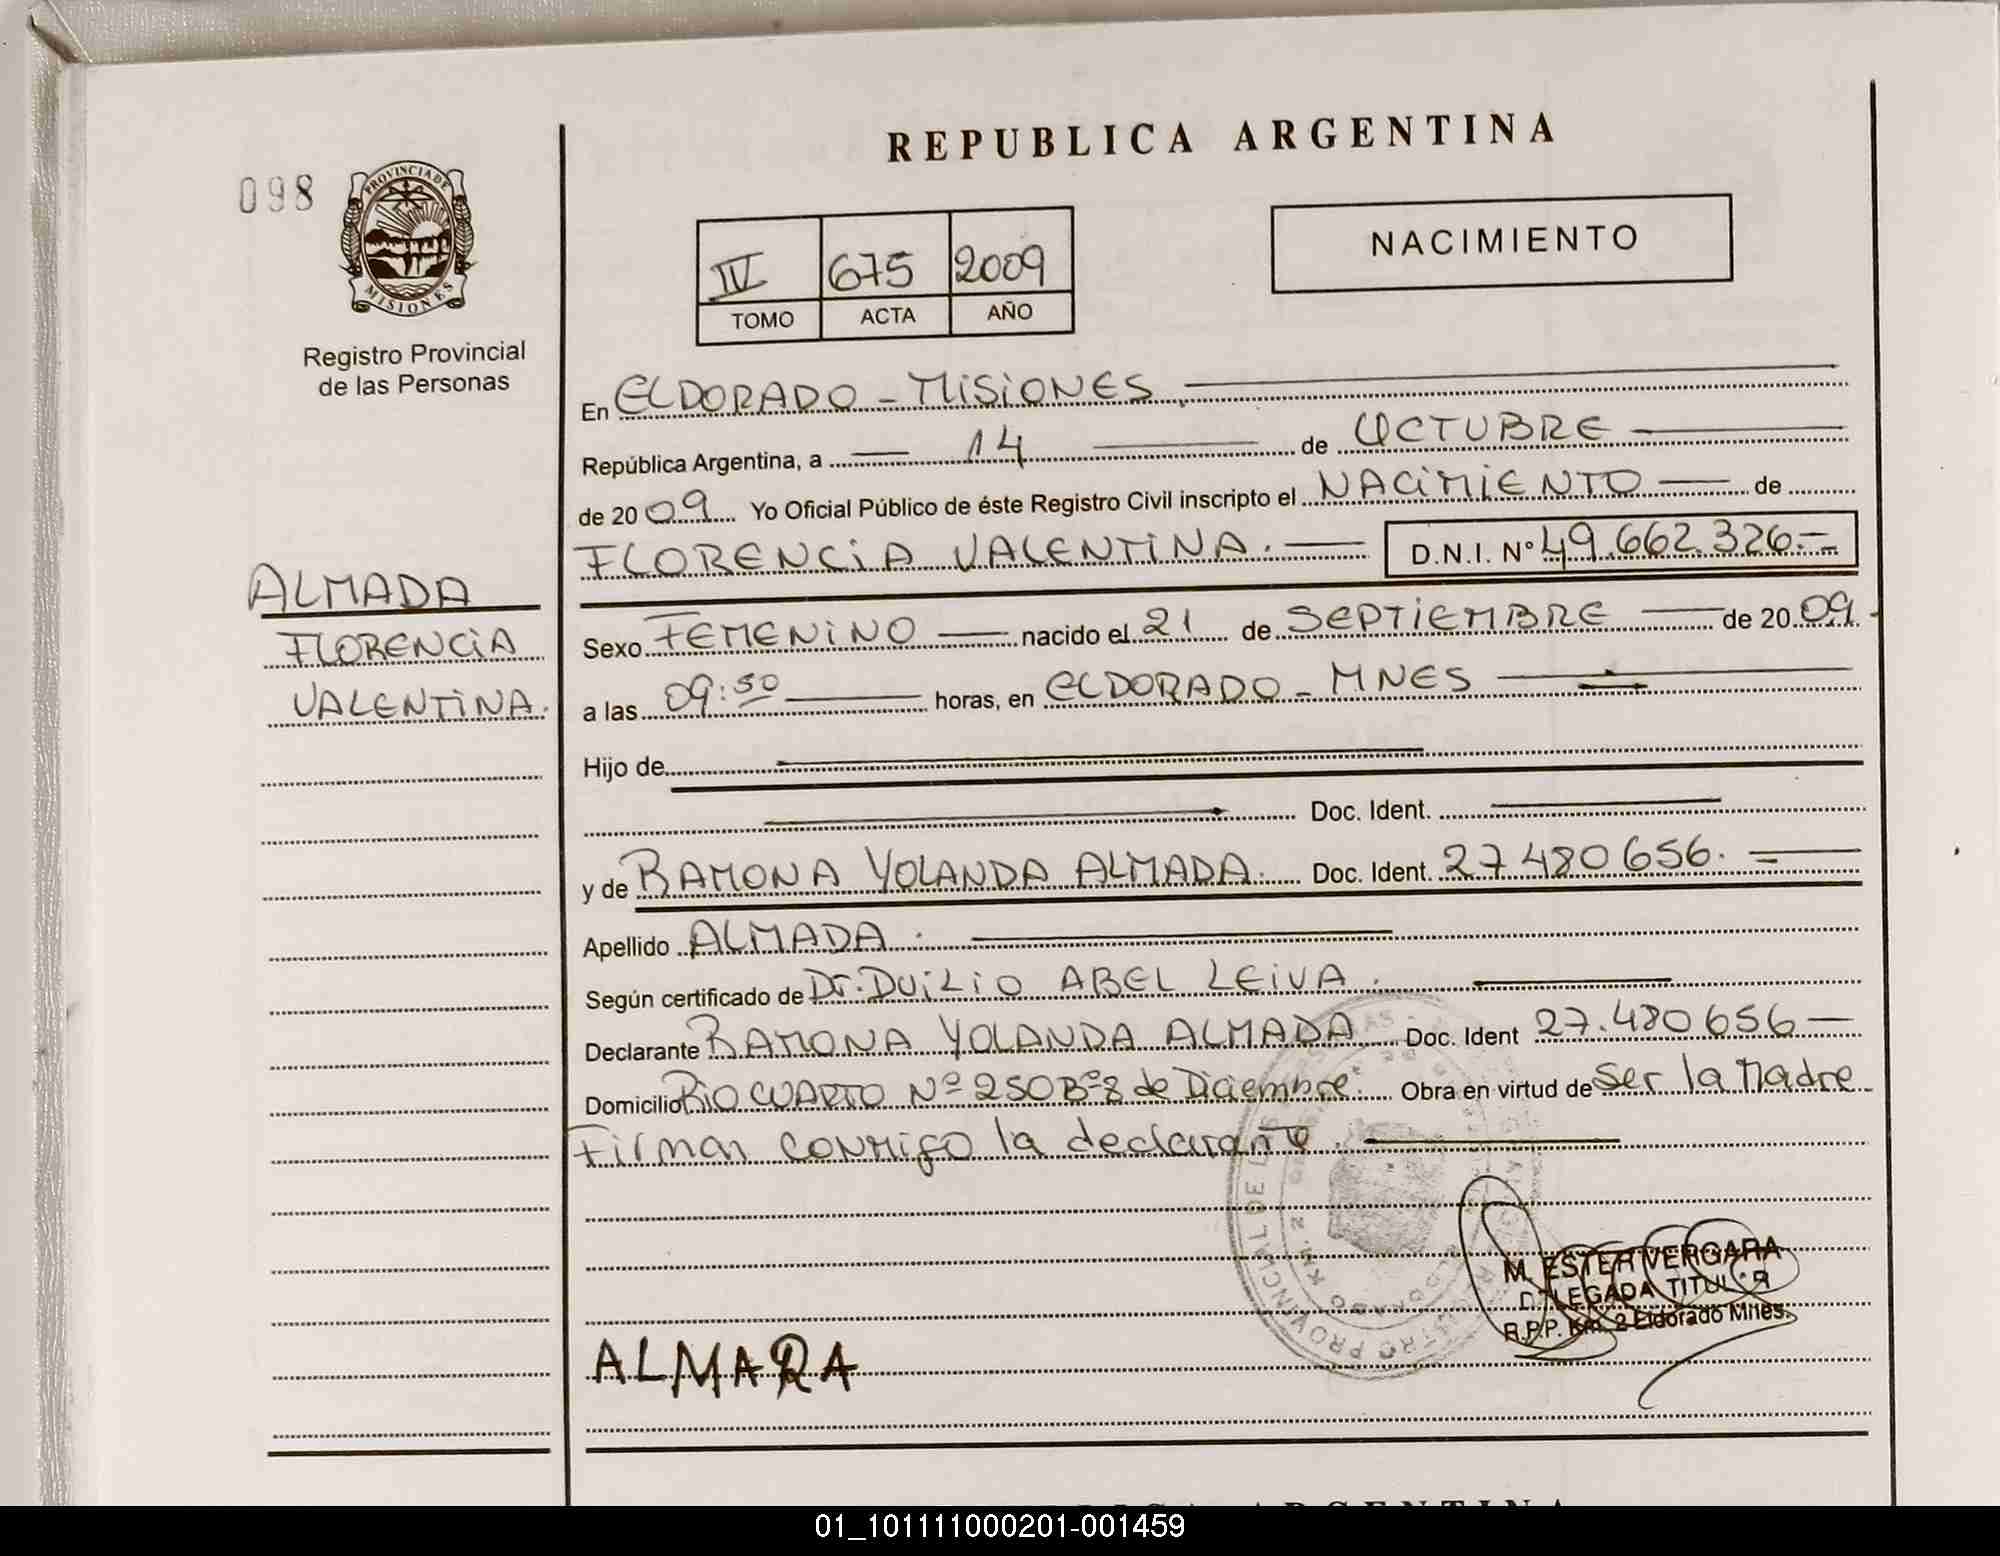 REPUBLICA ARGENTINA
098
PROVINCIA DE
MISIONES
Registro Provincial
de las Personas
NACIMIENTO
IV 675 2009
TOMO ACTA AÑO
En ELDORADO - MISIONES.
República Argentina, a 14 de OCTUBRE
de 2009 Yo Oficial Público de éste Registro Civil inscripto el NACIMIENTO de
FLORENCIA VALENTINA. D.N.I. N° 49.662.326.-
ALMADA
FLORENCIA
VALENTINA.
Sexo FEMENINO nacido el 21 de SEPTIEMBRE de 2009.
a las 09:50 horas, en ELDORADO - MNES
Hijo de
Doc. Ident.
y de RAMONA YOLANDA ALMADA. Doc. Ident. 27.480656.
Apellido ALMADA.
Según certificado de Dr. DUILIO ABEL LEIVA.
Declarante RAMONA YOLANDA ALMADA. Doc. Ident 27.480656
Domicilio RIO CUARTO Nº 250 Bº 8 de Diciembre. Obra en virtud de Ser la Madre
Firman conmigo la declarante.
M. ESTER VERGARA
DELEGADA TITULAR
R.P.P. Km. 2 Eldorado Mnes.
ALMADA
01_101111000201-001459